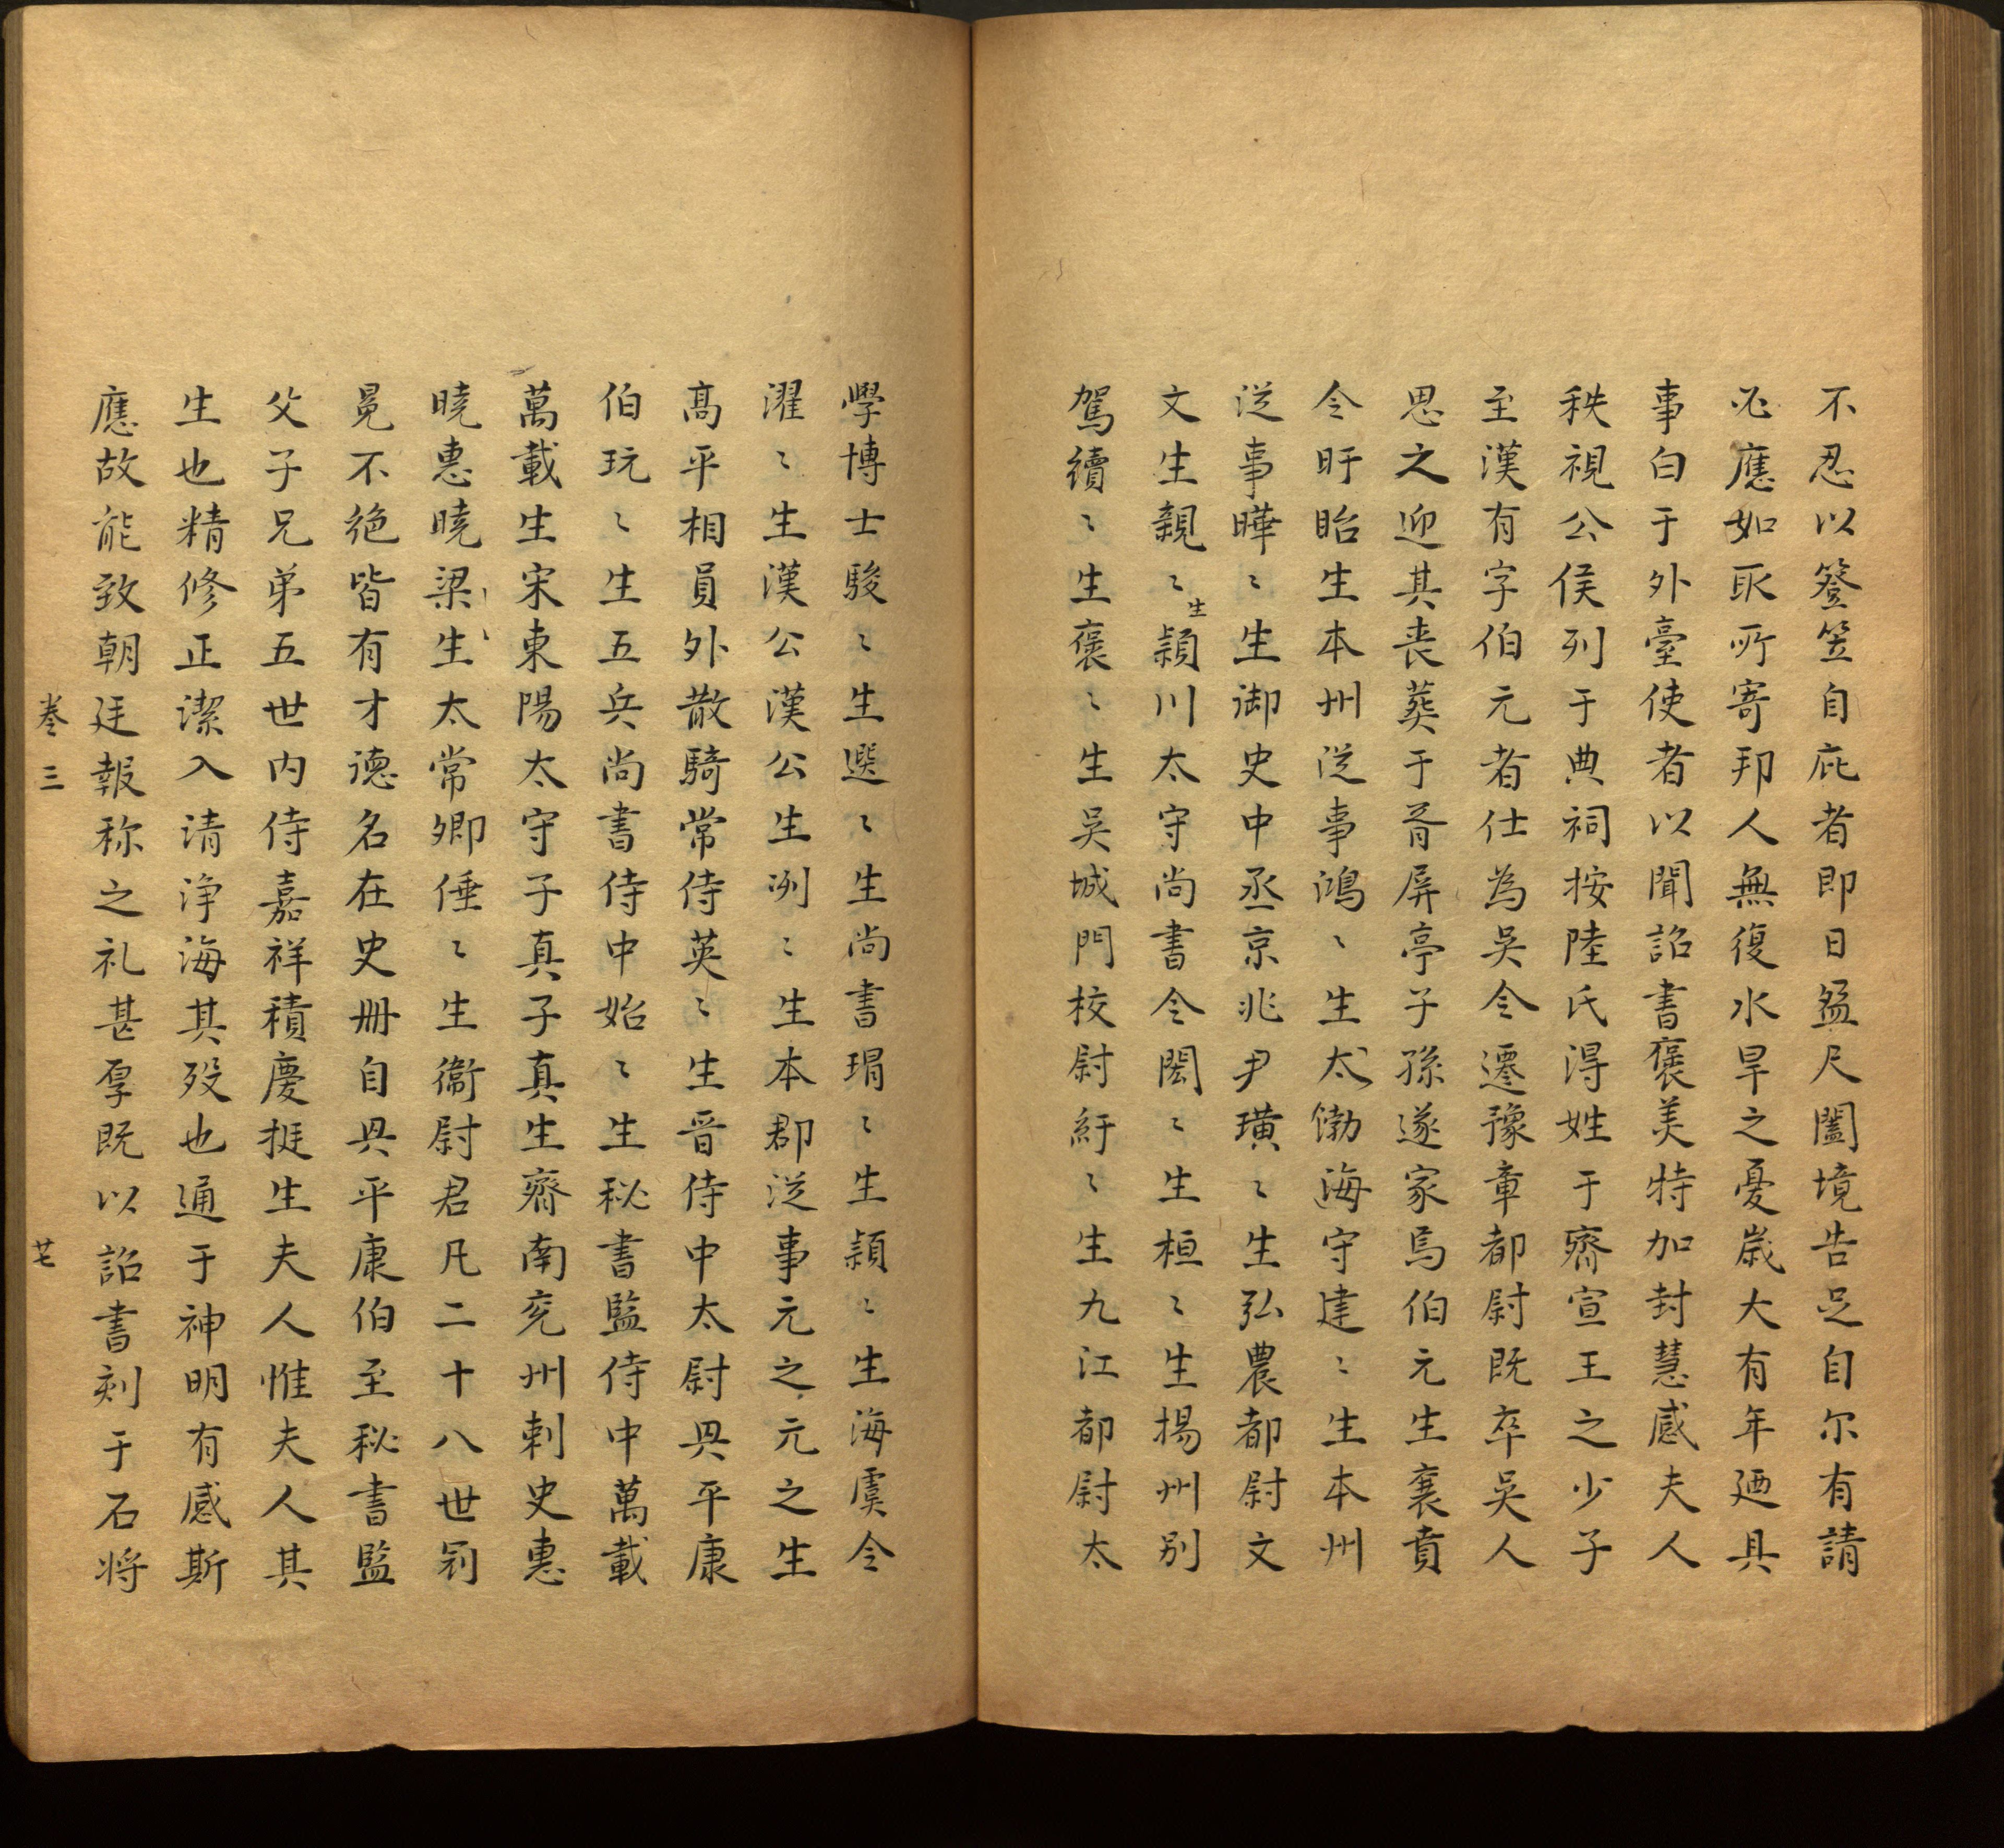 不忍以簦笠自庇者即日盈尺闔境告足自尔有請
必應如取所寄邦人無復水旱之憂歲大有年廼具
事白于外臺使者以聞詔書褒美特加封慧感夫人
秩視公侯列于典祠按陸氏淂姓于齊宣王之少子
至漢有字伯元者仕為吳令遷豫章都尉既卒吳人
思之迎其丧葬于胥屏亭子孫遂家焉伯元生襄賁
令盱眙生本州従事鴻〻生太渤海守建〻生本州
従事曄〻生御史中丞京兆尹璜〻生弘農都尉文
文生親〻生潁川太守尚書令閎〻生桓〻生揚州別
駕續〻生褒〻生吳城門校尉紆〻生九江都尉太
學博士駿〻生選〻生尚書瑁〻生潁〻生海虞令
濯〻生漢公漢公生洌〻生本郡従事元之元之生
髙平相員外散騎常侍英〻生晋侍中太尉興平康
伯玩〻生五兵尚書侍中始〻生秘書監侍中萬載
萬載生宋東陽太守子真子真生齊南兖州刺史惠
曉惠曉梁生太常卿倕〻生衞尉君凡二十八世冠
冕不绝皆有才德名在史册自興平康伯至秘書監
父子兄弟五世内侍嘉祥積慶挺生夫人惟夫人其
生也精修正潔入清浄海其歿也通于神明有感斯
應故能致朝廷報称之礼甚厚既以詔書刻于石将
卷三
廿七